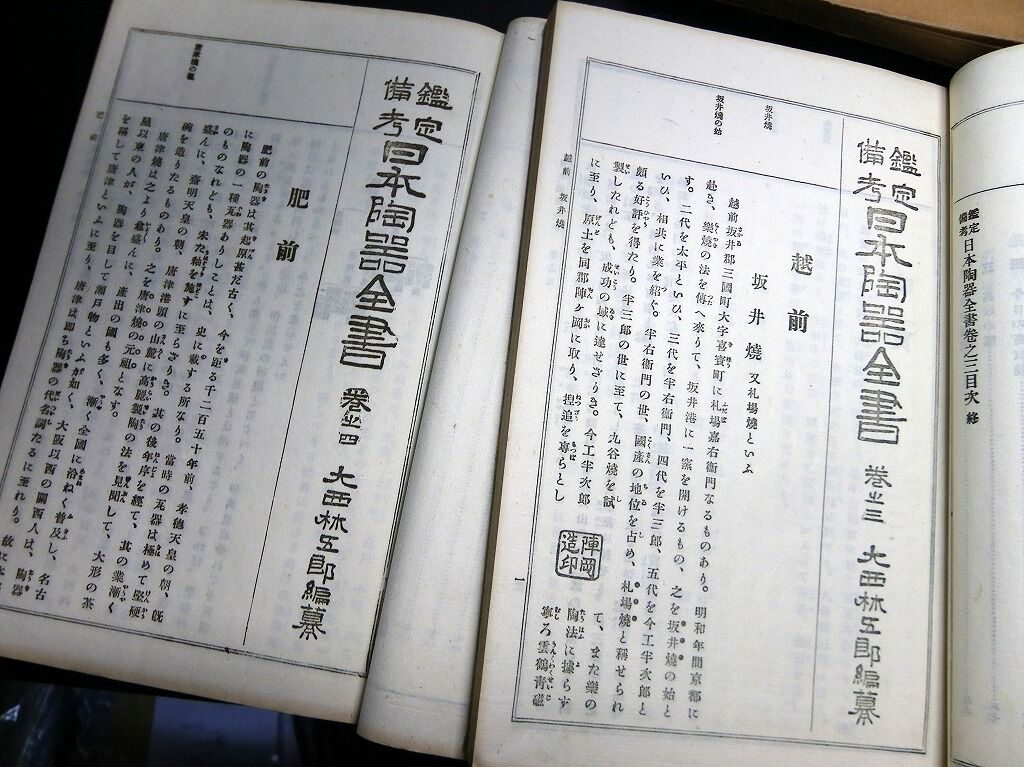 鑑定備考日本陶器全書卷之三目次 終
鑑定
備考
日本陶器全書 卷之三 大西林五郎編纂
越前
坂井燒 又札場燒といふ
坂井燒
坂井燒の始
越前坂井郡三國町大字喜寶町に札場嘉右衛門なるものあり。明和年間京都に
赴き、樂燒の法を傳へ來りて、坂井港に一窯を開けるもの、之を坂井燒の始と
す。二代を太平といひ、三代を半右衛門、四代を半三郎、五代を今工半次郎と
いひ、相共に業を紹ぐ。半右衛門の世、國產の地位を占め、札場燒と稱せられ
頗る好評を得たり。半三郎の世に至て、九谷燒を試
製したれども、成功の域に達せざりき。今工半次郎
に至り、原土を同郡陣ヶ岡に取り、揑造を專らとし
陣岡
造印
て、また樂の
陶法に據らず
寧ろ雲鶴青磁
越前 坂井燒
一
鑑定
備考
日本陶器全書 卷之四 大西林五郎編纂
肥前
唐津燒の
肥前の陶器は其起原甚だ古く、今を距る千二百五十年前、孝德天皇の朝、既
に陶器の一種瓦器ありしことは、史に載する所なり。當時の瓦器は極めて堅硬
のものなれども、未だ釉を施すに至らざりき。其の後年序を經て、其の業漸く
盛んに、齋明天皇の朝、唐津港頭の山麓に高麗製陶の法を見聞して、大形の茶
碗を造りたるものあり。之を唐津燒の元祖となす。
唐津燒は之より愈盛んに、產出の國も多く、漸く全國に洽ねく普及し、名古
屋以東の人が、陶器を目して瀨戶物といふが如く、大阪以西の關西人は、陶器
を稱して唐津といふに至り、唐津は即ち陶器の代名詞たるに至れり。故に
肥前